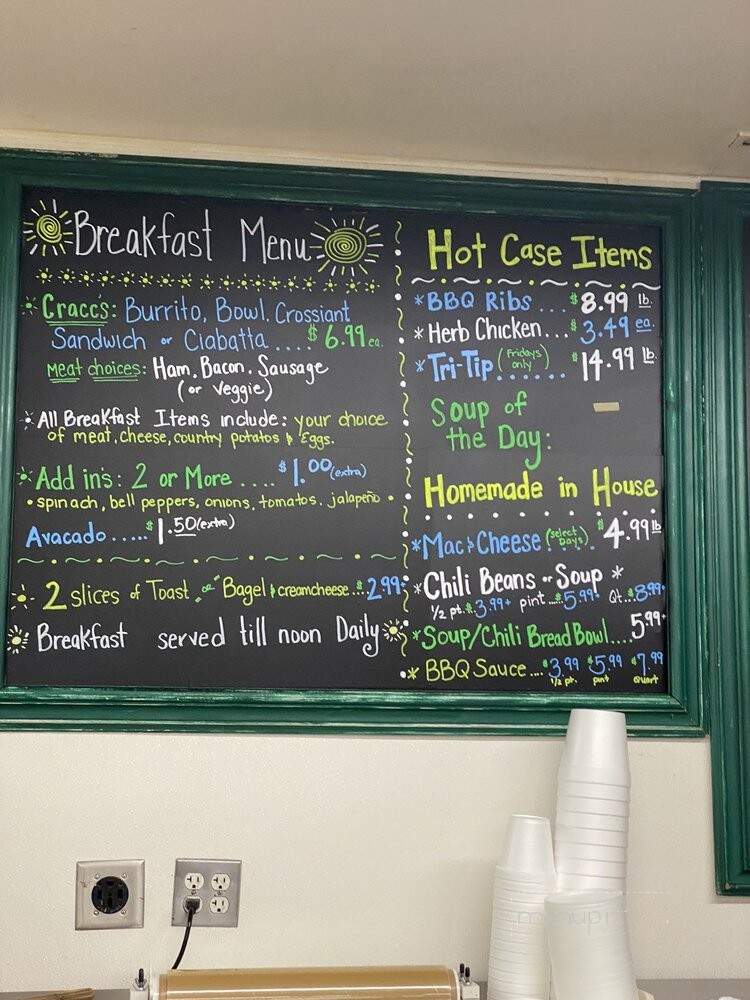 Breakfast Menu
Cracc's: Burrito, Bowl, Crossiant
Sandwich or Ciabatta .... $6.99 ea.
Meat choices: Ham, Bacon, Sausage
(or veggie)
All Breakfast Items include: your choice
of meat, cheese, country potatos & Eggs.
Add in's: 2 or More .... $1.00 (extra)
• spinach, bell peppers, onions, tomatos, jalapeño •
Avacado ..... $1.50 (extra)
2 slices of Toast or Bagel & creamcheese ... 2.99
Breakfast served till noon Daily
Hot Case Items
*BBQ Ribs ... $8.99 lb.
*Herb Chicken ... $3.49 ea.
*Tri-Tip (Fridays only) ...... $14.99 lb.
Soup of
the Day:
Homemade in House
*Mac & Cheese (select Days) .... $4.99 lb
*Chili Beans or Soup *
1/2 pt. $3.99+ pint ... $5.99+ Qt... $8.99+
*Soup/Chili Bread Bowl .... 5.99+
* BBQ Sauce .... $3.99 $5.99 $7.99
1/2 pt. pint quart
menupix